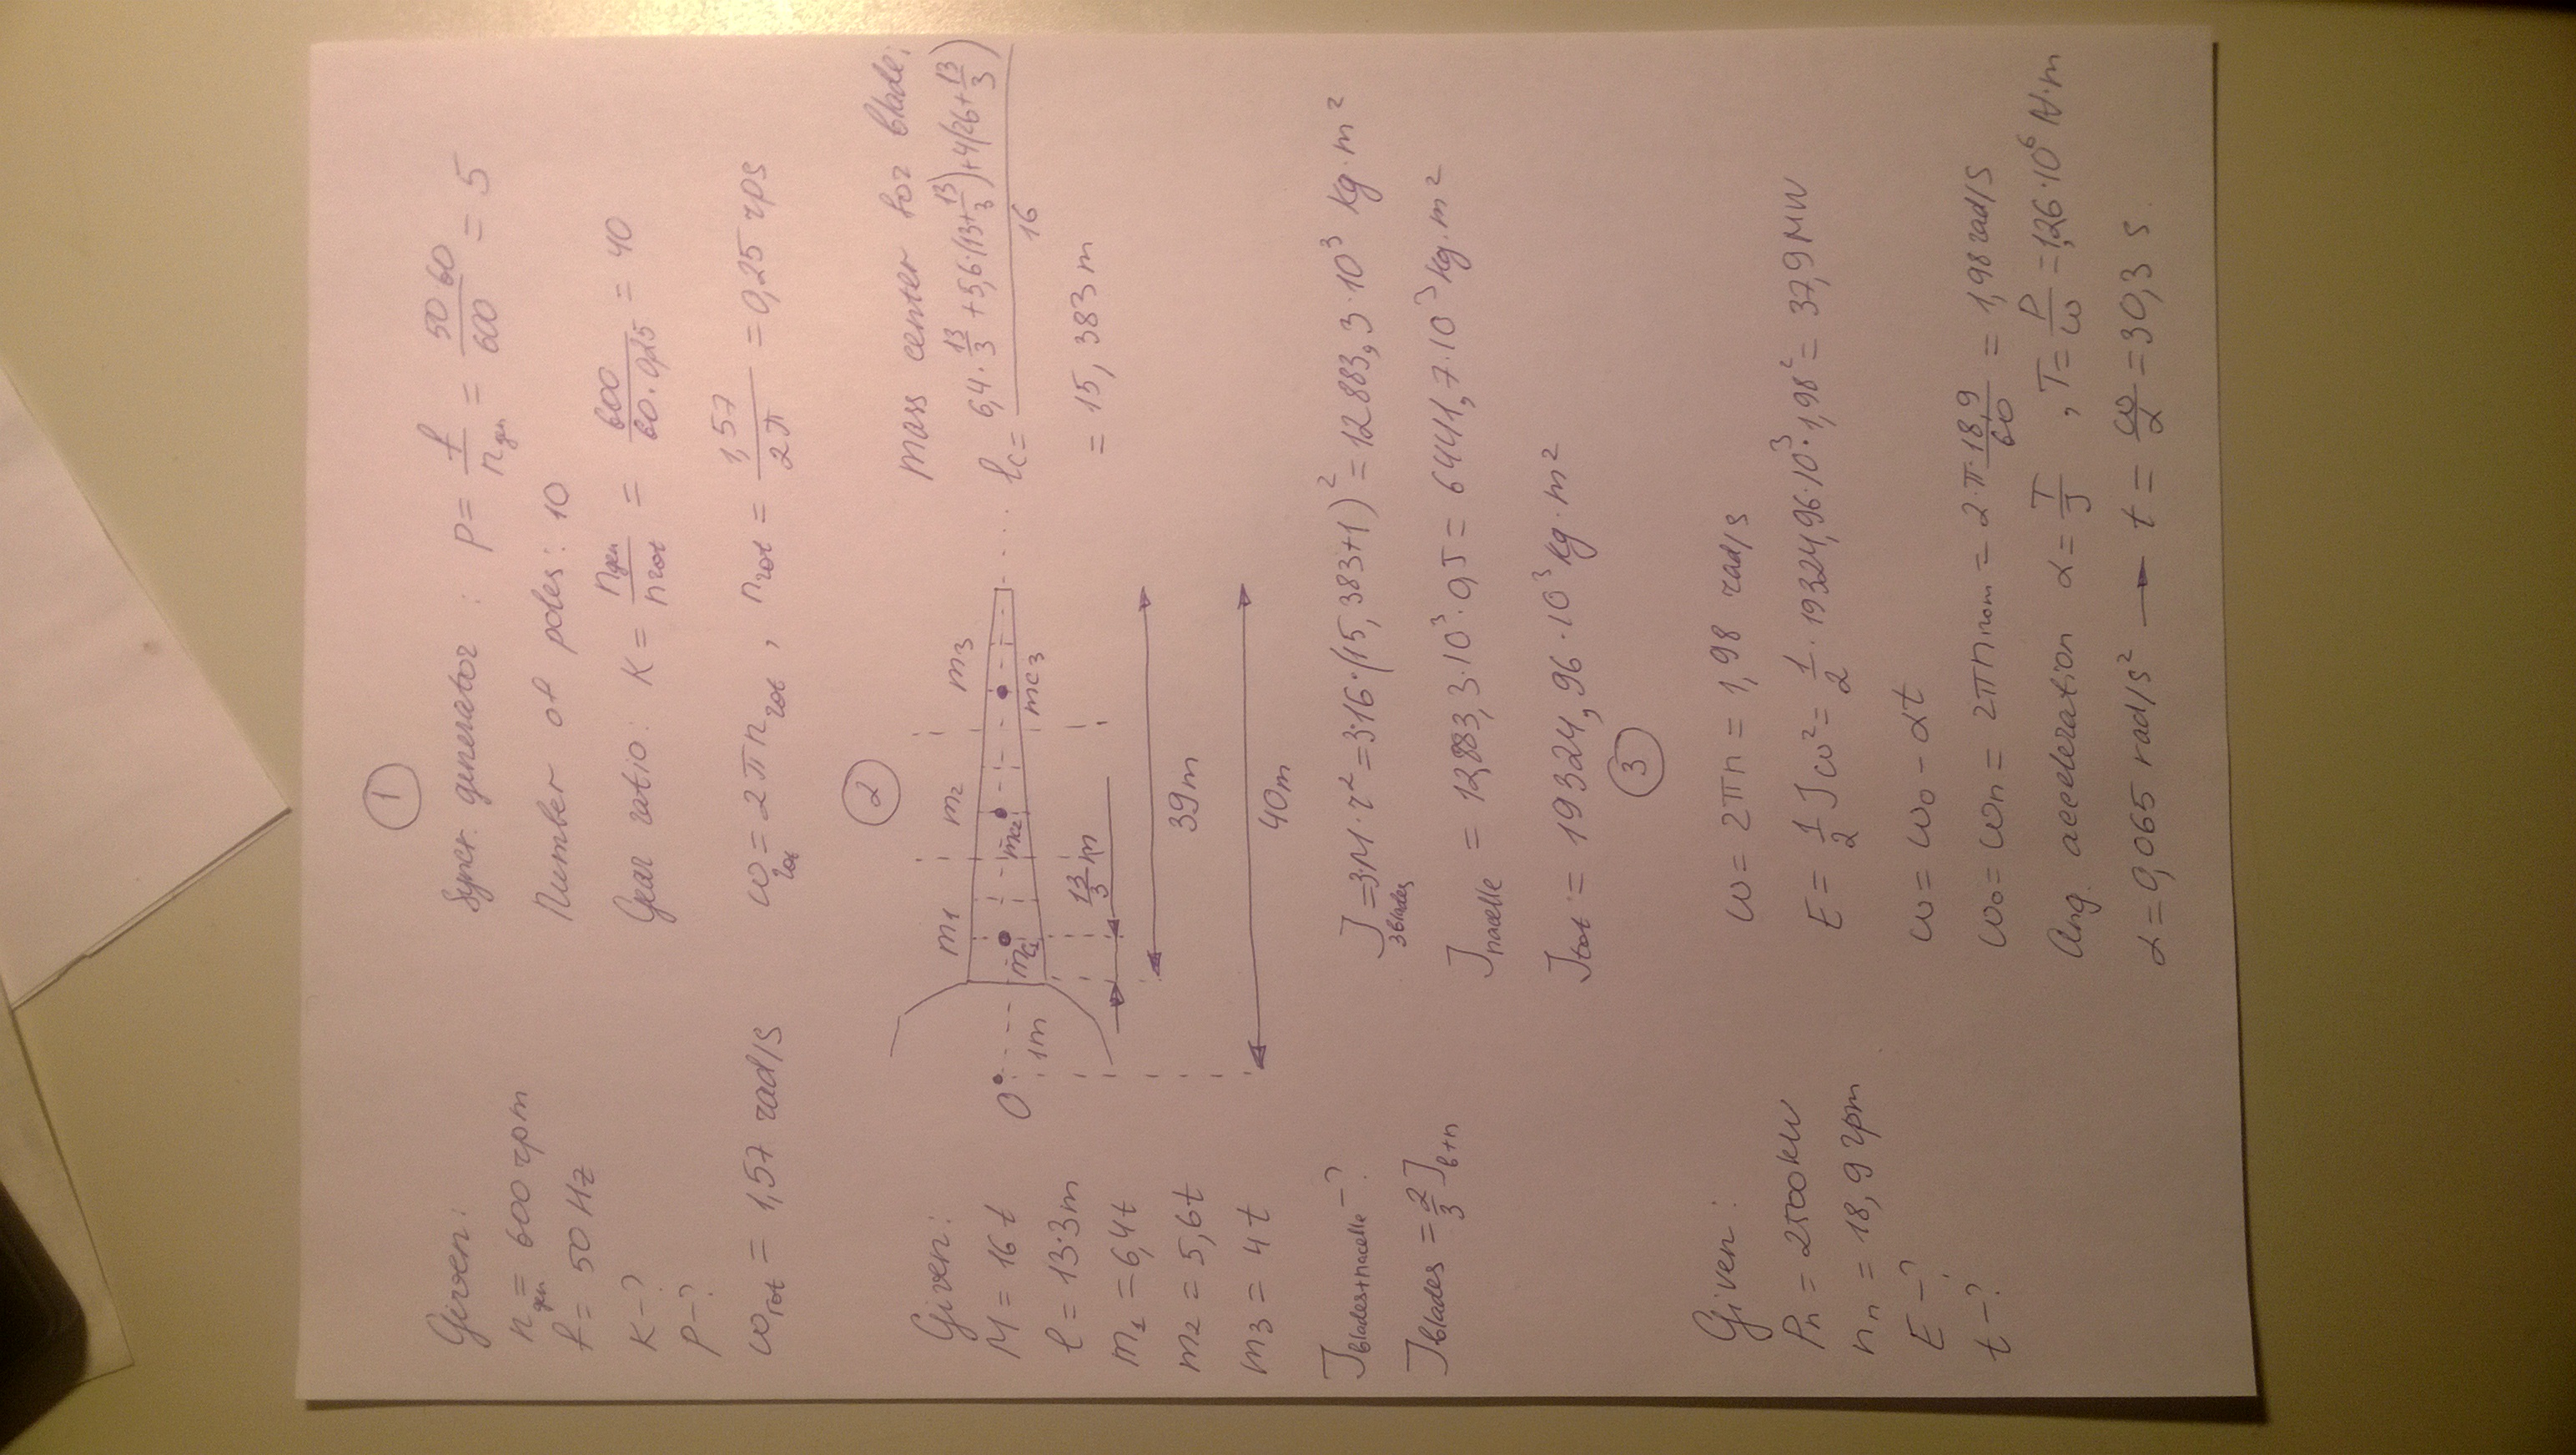 ①
Given:
n gen = 600 rpm
f = 50 Hz
K - ?
P - ?
ω rot = 1,57 rad/s
Syncr. generator : P = f / n gen = 50 60 / 600 = 5
Number of poles: 10
Gear ratio: K = n gen / n rot = 600 / 60 · 0,25 = 40
ω rot = 2πn rot , n rot = 1,57 / 2π = 0,25 rps
②
Given:
M = 16 t
l = 13·3m
m₁ = 6,4t
m₂ = 5,6t
m₃ = 4 t
J blades+nacelle - ?
J blades = 2/3 J b+n
m₁ m₂ m₃
O 1m mc₁ mc₂ mc₃
13/3 m
39m
40m
mass center for blade:
lc = (6,4 · 13/3 + 5,6·(13+13/3) + 4(26+13/3)) / 16
= 15,383m
J 3blades = 3·M·r² = 3·16·(15,383+1)² = 12883,3·10³ kg·m²
J nacelle = 12883,3·10³·0,5 = 6441,7·10³ kg·m²
J tot = 19324,96·10³ kg·m²
③
Given:
Pn = 2500kW
nn = 18,9 rpm
E - ?
t - ?
ω = 2πn = 1,98 rad/s
E = 1/2 Jω² = 1/2 · 19324,96·10³·1,98² = 37,9 MW
ω = ω₀ - αt
ω₀ = ωn = 2πn nom = 2·π·18,9/60 = 1,98 rad/s
Ang. acceleration α = T/J , T = P/ω = 1,26·10⁶ N·m
α = 0,065 rad/s² → t = ω/α = 30,3 s